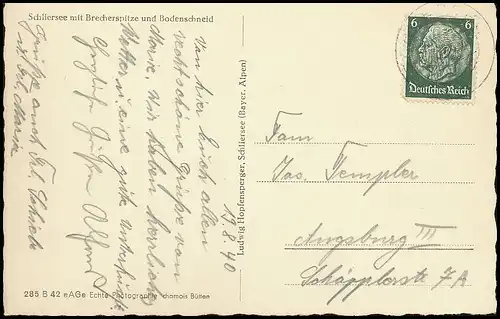 Schliersee mit Brecherspitze und Bodenschneid
13.8.40
Von hier Euch allen
recht schöne Grüße von
Marie. Wir haben herrlich
Wetter u. eine gute Unterkunft
Herzliche Grüße Alfons
Grüße auch Frl.
285 B 42 eAGe Echte Photographie chamois Bütten
Ludwig Hopfensperger, Schliersee (Bayer. Alpen)
6 6
Deutsches Reich
Fam
Jos. Templer
Augsburg III
Schöpplerstr 7 A